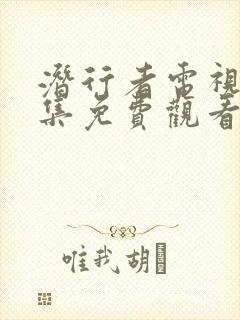 潛行者電視
集免費觀看
唯我胡